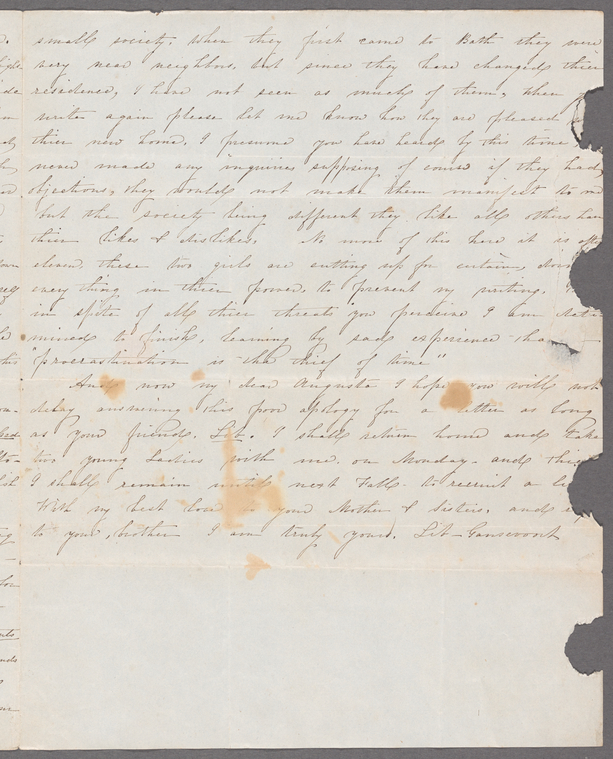 small society. When they first came to Bath they were
very near neighbors, but since they have changed thier
residence, I have not seen as much of them, when
write again please let me know how they are pleased
thier new home. I presume you have heard by this time
never made any inquiries supposing of course if they had
objections, they would not make them manifest to me
but the society being different they like all others have
thier likes & dislikes. No more of this here it is after
eleven, these two girls are cutting up for certain, doing
every thing in thier power, to prevent my writing,
in spite of all thier threats you perceive I am
mined to finish, learning by sad experience that
procrastination is "the thief of time"
And now my dear Augusta I hope you will not
delay answering this poor apology for a letter as long
as your friend. Lib. I shall return home and take
two young Ladies with me. on Monday. and
I shall remain until next Fall. to recruit a
With my best love to your Mother & sisters. and
to your brother I am truly yours. Lib Gansevoort